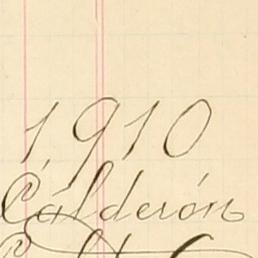 1910
Cálderón